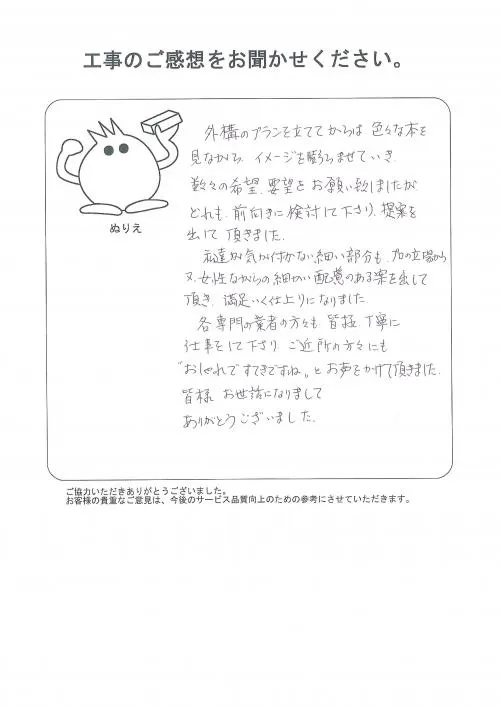 工事のご感想をお聞かせください。
ぬりえ
外構のプランを立ててからは 色々な本を
見ながら、イメージを膨らませていき
数々の希望、要望をお願い致しましたが
どれも、前向きに検討して下さり、提案を
出して 頂きました。
私達が気が付かない細い部分も、プロの立場から
又、女性ならがらの細かい配慮のある案を出して
頂き、満足いく仕上りになりました。
各専門の業者の方々も 皆様、丁寧に
仕事をして下さり、ご近所の方々にも
"おしゃれですてきですね。"と お声をかけて頂きました。
皆様 お世話になりまして
ありがとうございました。
ご協力いただきありがとうございました。
お客様の貴重なご意見は、今後のサービス品質向上のための参考にさせていただきます。